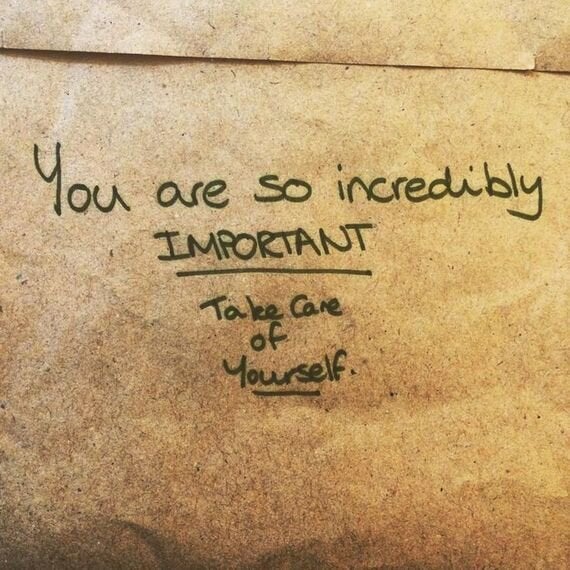 You are so incredibly
IMPORTANT
Take Care
of
Yourself.